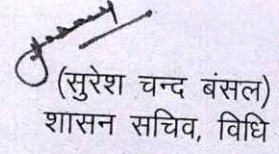 (सुरेश चन्द बंसल)
शासन सचिव, विधि